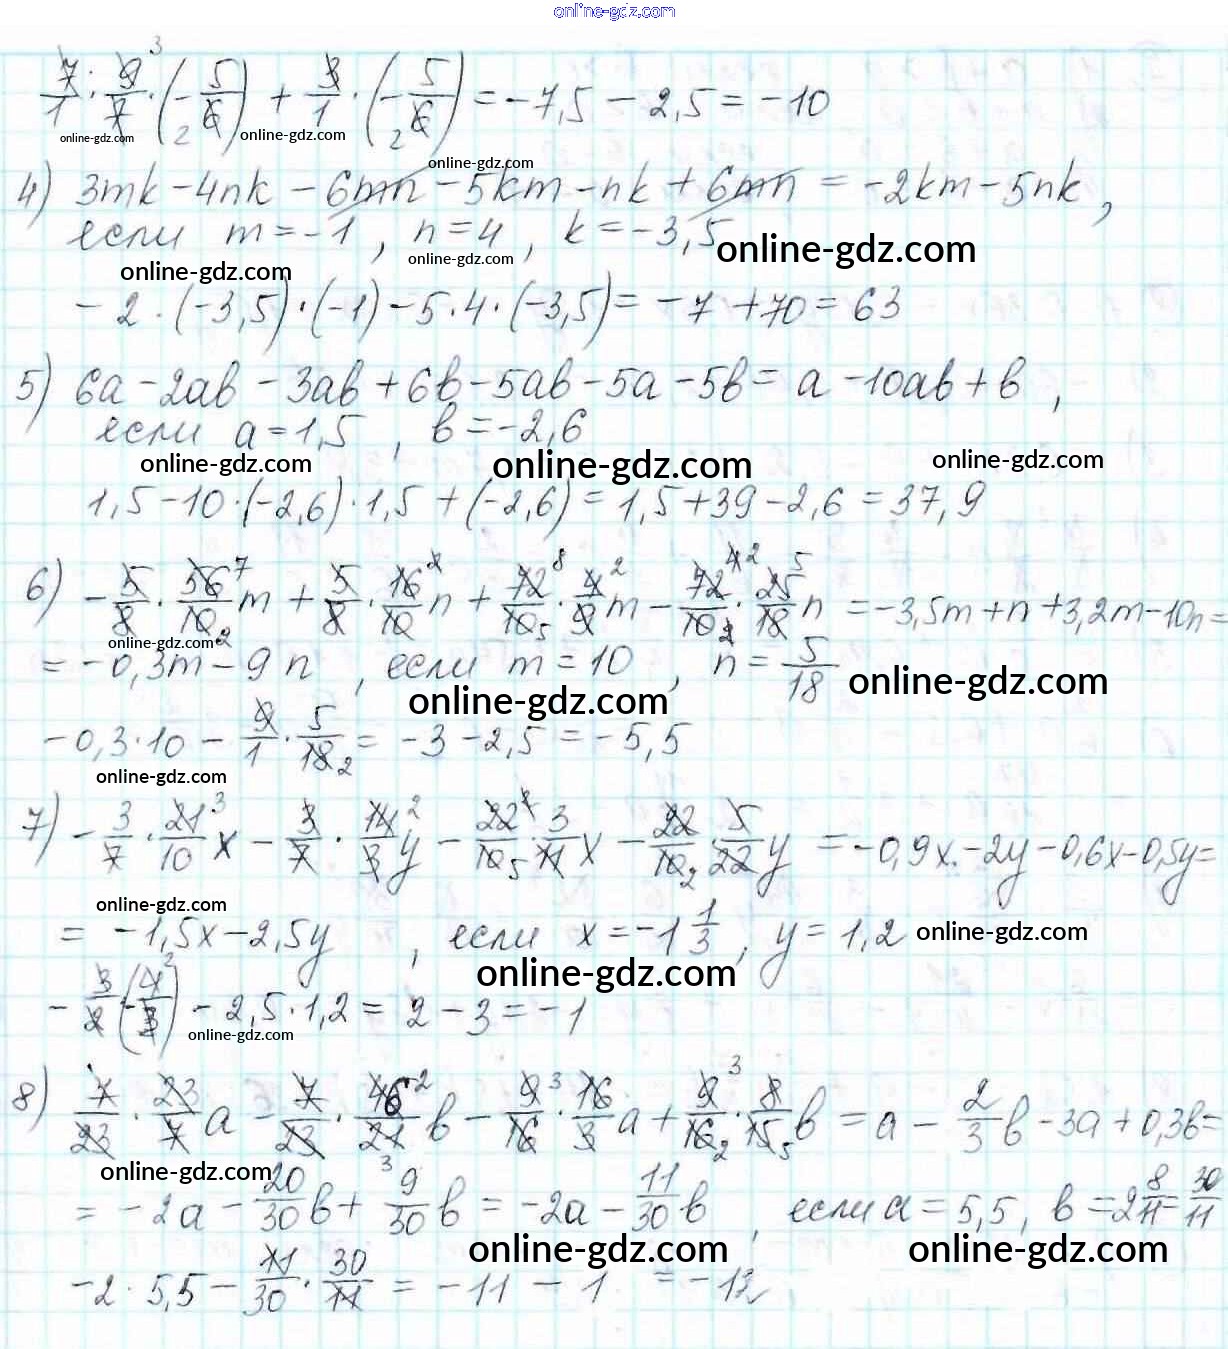 online-gdz.com
7/1 · 9/7 · (-5/6) + 3/1 · (-5/6) = -7,5 - 2,5 = -10
online-gdz.com online-gdz.com
online-gdz.com
4) 3mk - 4nk - 6mn - 5km - nk + 6mn = -2km - 5nk,
если m = -1, n = 4, k = -3,5
online-gdz.com online-gdz.com online-gdz.com
-2 · (-3,5) · (-1) - 5 · 4 · (-3,5) = -7 + 70 = 63
5) 6a - 2ab - 3ab + 6b - 5ab - 5a - 5b = a - 10ab + b,
если a = 1,5, b = -2,6
online-gdz.com online-gdz.com online-gdz.com
1,5 - 10 · (-2,6) · 1,5 + (-2,6) = 1,5 + 39 - 2,6 = 37,9
6) -5/8 · 56/10 m + 5/8 · 16/10 n + 72/10 · 4/9 m - 72/10 · 25/18 n = -3,5m + n + 3,2m - 10n =
online-gdz.com
= -0,3m - 9n, если m = 10, n = 5/18
online-gdz.com online-gdz.com
-0,3 · 10 - 9/1 · 5/18 = -3 - 2,5 = -5,5
online-gdz.com
7) -3/7 · 21/10 x - 3/7 · 14/3 y - 22/10 · 3/11 x - 22/10 · 5/22 y = -0,9x - 2y - 0,6x - 0,5y =
online-gdz.com
= -1,5x - 2,5y, если x = -1 1/3, y = 1,2
online-gdz.com
online-gdz.com
-3/2 (-4/3) - 2,5 · 1,2 = 2 - 3 = -1
online-gdz.com
8) 7/23 · 23/7 a - 7/23 · 46/21 b - 9/16 · 16/3 a + 9/16 · 8/15 b = a - 2/3 b - 3a + 0,3b =
online-gdz.com
= -2a - 20/30 b + 9/30 b = -2a - 11/30 b, если a = 5,5, b = 2 8/11 = 30/11
online-gdz.com online-gdz.com
-2 · 5,5 - 11/30 · 30/11 = -11 - 1 = -12